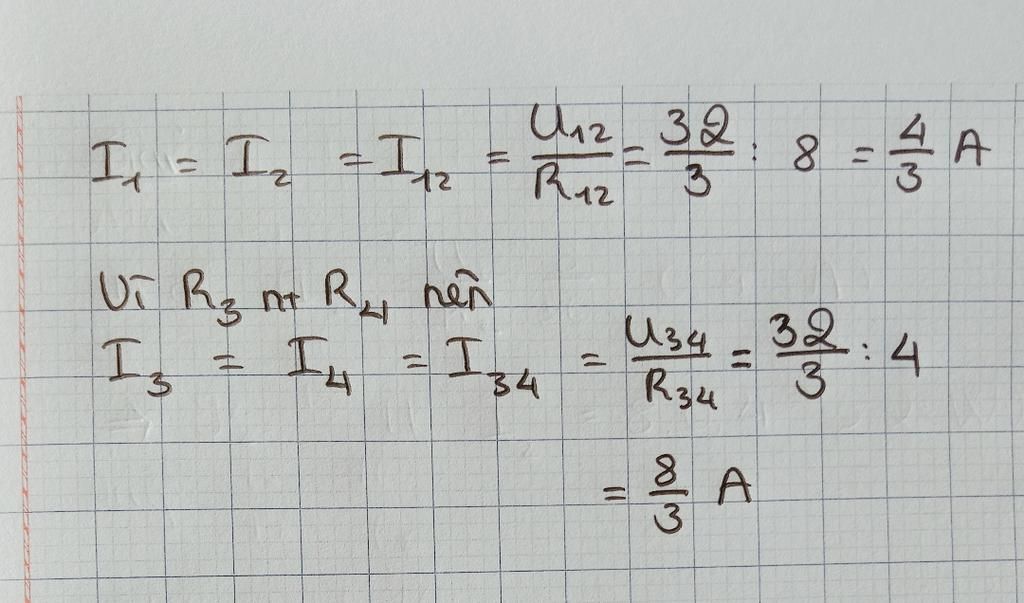 I₁ = I₂ = I₁₂ = U₁₂/R₁₂ = 32/3 : 8 = 4/3 A
Vì R₃ nt R₄ nên
I₃ = I₄ = I₃₄ = U₃₄/R₃₄ = 32/3 : 4
= 8/3 A